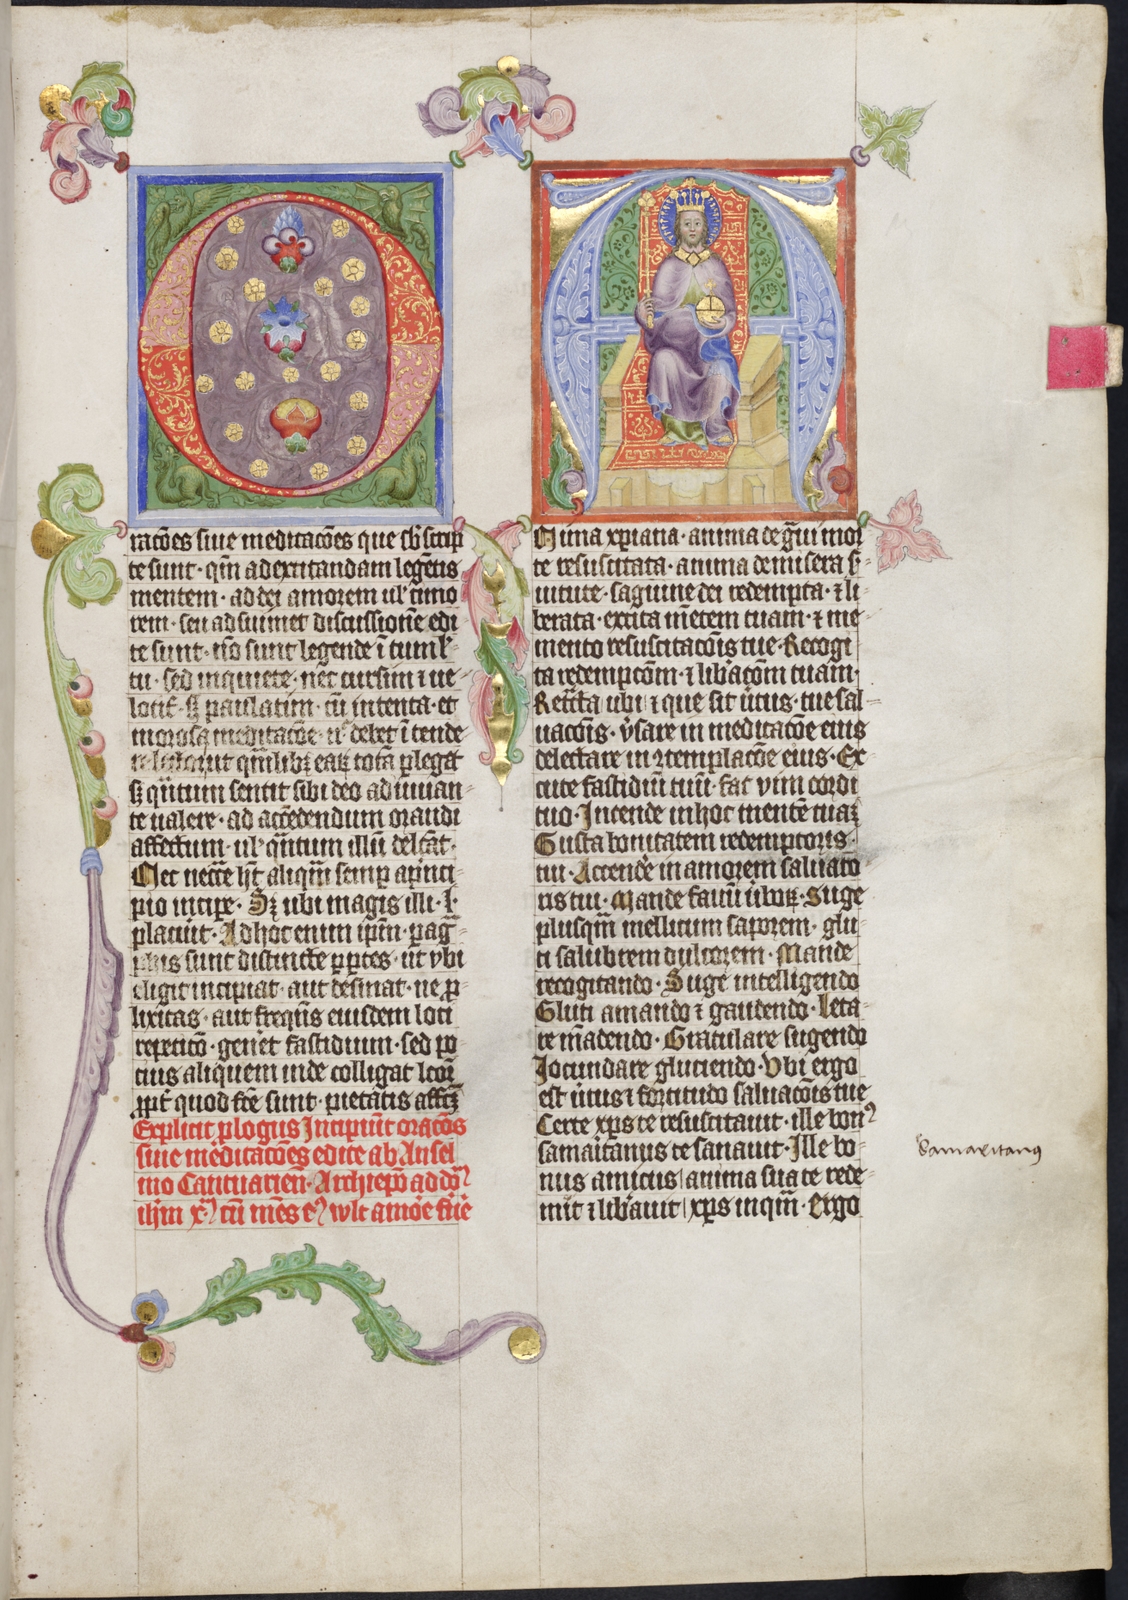 O
racōes siue meditacōes que sb̄ scrip
te sunt · qm̄ ad excitandam legētis
mentem · ad dei amorem ul' timo
rem · seu ad suimet discussionē edi
te sunt · nō sunt legende ī tumul
tu · sed in quiete · nec cursim ⁊ ue
locit' · sʒ paulatim · cū intenta · et
morosa meditacōe · n' debet ītende
qm̄libʒ eaꝝ totā ꝑlegāt
sʒ qn̄tum sentit sibi deo adiuuan
te ualere · ad accēdendum orandi
affectum · ul' qn̄tum illū delc̄at ·
Nec necc̄e ht̄ aliqm̄ semꝑ a princi
pio incipe · Sʒ ubi magis illi · ꝑ
placuit · Ad hoc enim ip̄m · parag̃
phis sunt distincte ꝑ ꝑtes · ut ybi
eligit incipiat · aut desinat · ne ꝓ
lixitas · aut freqn̄s eiusdem loci
repeticō · gen'et fastidium · sed po
cius aliquem inde colligat lc̄or
ꝓpt' quod fc̄e sunt · pietatis affc̄ʒ
Explicit ꝓlogus Incipiūt orac̄ōes
siue meditacōes edite ab Ansel
mo Cantuarien̄ · Archiep̄o ad dn̄ꝫ
ih̄m xꝫ cū mēs eꝫ wlt amōe fūe
A
Nima xp̄iana · anima de g̃ui mor
te resuscitata · anima de misera s̄
uitute · sagwine dei redempta · ⁊ li
berata · excita mētem tuam · ⁊ me
mento resuscitacōis tue · Recogi
ta redempcōm · ⁊ lib'acōm tuam
Retc̄ta ubi ⁊ que sit ūtus · tue sal
uacōis · v'sare in meditacōe eius
delectare in ꝯtemplacōe eius · Ex
cute fastidiū tuū · fac vim cordi
tuo · Intende in hoc mentē tuaꝫ
Gusta bonitatem redemptoris ·
tui · Accende in amorem saluato
ris tui · Mande fauū ūboꝝ · Suge
plusqm̄ mellitum saporem · glu
ti salubrem dulcorem · Mande
recogitando · Suge intelligendo
Gluti amando ⁊ gaudendo · Leta
re mādendo · Gratulare sugendo
Jocundare gluciendo · Vbi ergo
est ūtus ⁊ fortitudo saluacōis tue
Certe xp̄s te resuscitauit · ille bonꝰ
samaritanus te sanauit · Ille bo
nus amicus anima sua te rede
mit ⁊ lib'auit xp̄s inqm̄ · ergo
Samaritanus